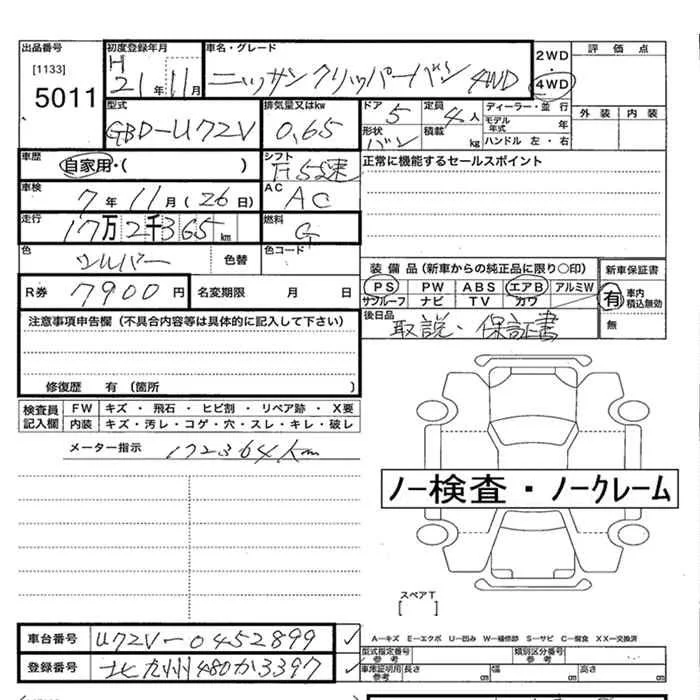 出品番号
[1133]
5011
初度登録年月
H 21年 11月
車名・グレード
ニッサンクリッパーバン 4WD
2WD・4WD
評価点
外装 内装
型式
GBD-U72V
排気量又はkw
0.65
ドア 5
定員 4人
形状 バン
積載 kg
ディーラー・並行
モデル年式 年
ハンドル 左・右
車歴
自家用・( )
シフト
F5速
正常に機能するセールスポイント
車検
7年 11月 (26日)
AC
AC
走行
17万2千365km
燃料
G
色
シルバー
色替
色コード
R券 7900円
名変期限 月 日
装備品(新車からの純正品に限り○印)
PS PW ABS エアB アルミW
サンルーフ ナビ TV カワ
新車保証書
有 車内積込無効
無
後日品
取説・保証書
注意事項申告欄(不具合内容等は具体的に記入して下さい)
修復歴 有(箇所 )
検査員記入欄
FW キズ・飛石・ヒビ割・リペア跡・X要
内装 キズ・汚レ・コゲ・穴・スレ・キレ・破レ
メーター指示 172364km
ノー検査・ノークレーム
スペアT
[ ]
A-キズ E-エクボ U-凹み W-補修跡 S-サビ C-腐食 XX-交換済
車台番号 U72V-0452899
登録番号 北九州480か3397
型式指定番号 参考
類別区分番号 参考
車庫証明用 参考 長さ cm 幅 cm 高さ cm